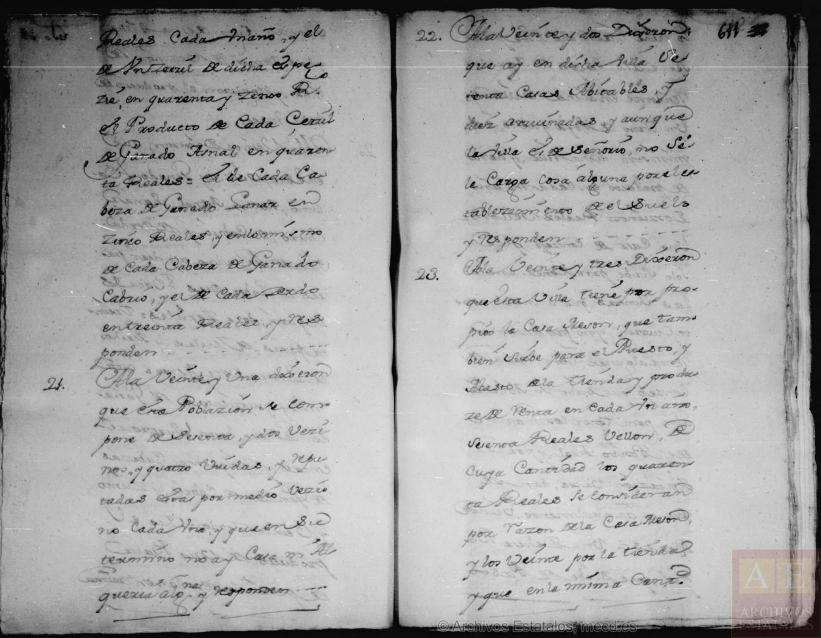 Reales Cada Vn año, y el
de
de dicha espe
zie, en quarenta y zinco R.s
el Producto de Cada
de Ganado Asnal en quaren
ta Reales = el de Cada Ca
beza de Ganado Lanar en
zinco Reales, y en lo mismo
de Cada Cabeza de Ganado
Cabrio, y el de Cada Zerdo
en treinta Reales, y res
ponden
21. A la Veinte y Una dixeron
que esta Poblazion se com
pone de sesenta, y dos Vezi
nos, y quatro Viudas, y repu
tadas esta por medio Vezi
no Cada Vna, y que en su
termino no ay Casa ni Al
queria alg.na y responden
611
22. A la Veinte y dos Dixeron
que ay en dicha Villa Se
tenta Casas Abitables, y
diez arruinadas, y aunque
la Villa es de Señorio, no Se
le Carga cosa alguna por el es
tablezimiento de el Suelo
y responden
23. A la Veinte y tres Dixeron
que esta Villa tiene por pro
pios la Casa Meson, que tam
bien Sirbe para el Puesto, y
Abasto de la tienda y produ
ze de renta en cada Vn año,
Sesenta Reales Vellon, de
Cuya Cantidad los quaren
ta Reales se consideran
por razon de la Casa Meson,
y los Veinte por la tienda
y que en la misma
AE
ARCHIVOS
ESTATALES
© Archivos Estatales, mecd.es